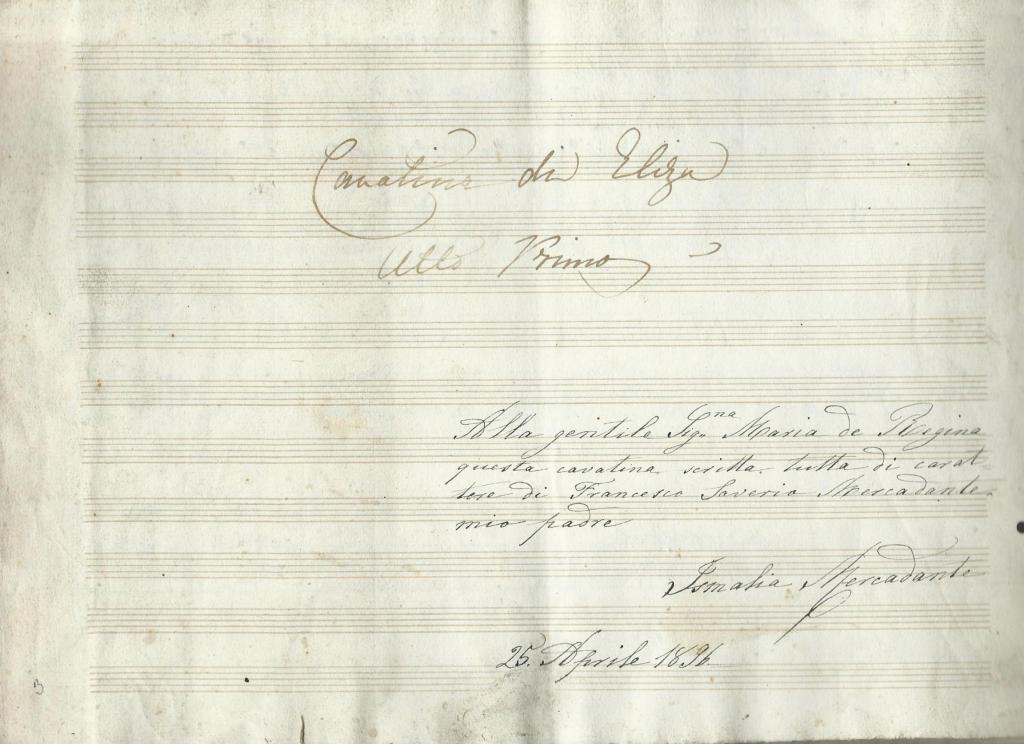 Cavatina di Eliza
Atto Primo
Alla gentile Sig.na Maria de Regina
questa cavatina scritta tutta di carat-
tere di Francesco Saverio Mercadante
mio padre
Ismalia Mercadante
25. Aprile 1896
3